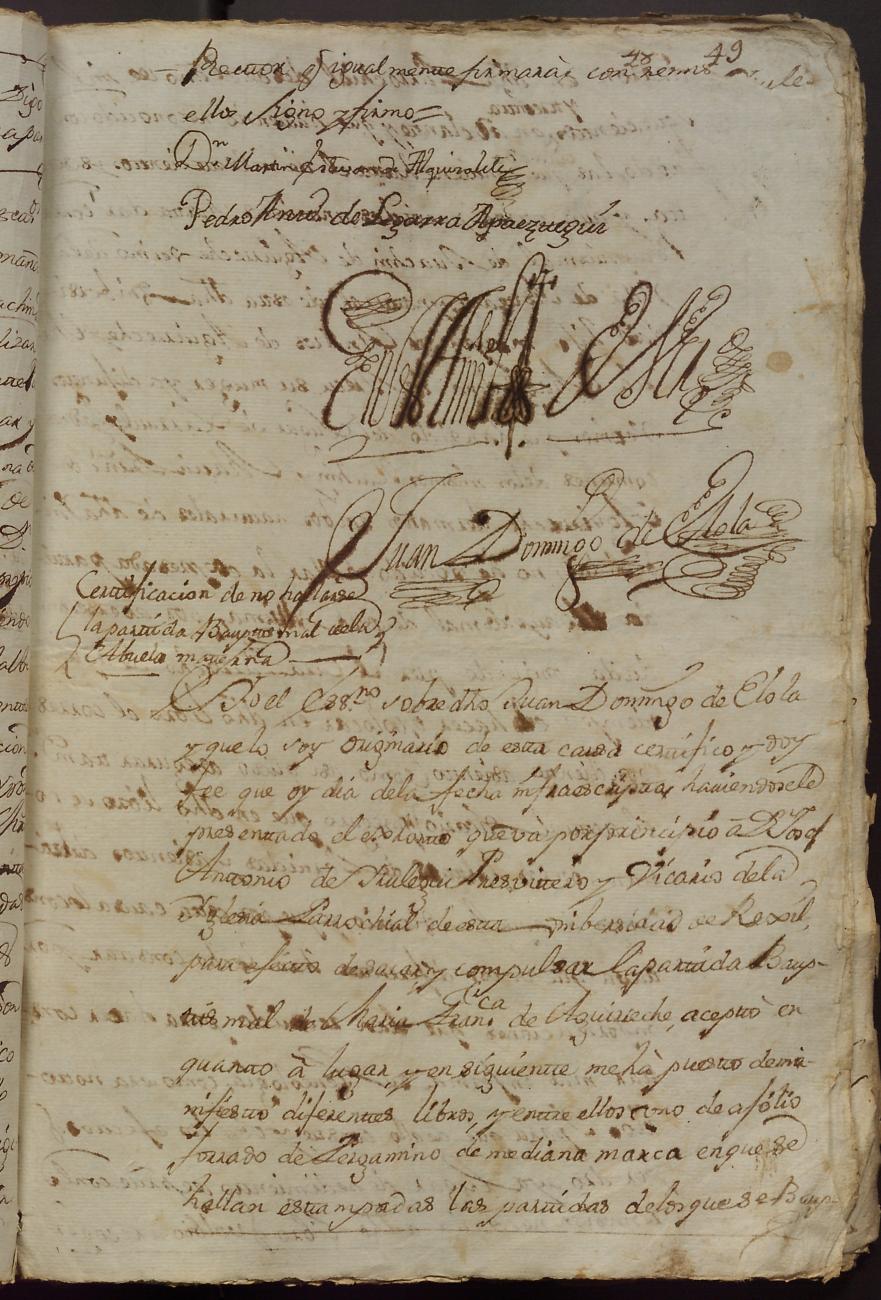 48 49
Rector q.e igualmente firmarà, con
ellos signo y firmo=
D.n Martin de Alquizalete
Pedro Ant.o de Lizarra Apaezteguí
En testim.o de
Juan Domingo de Elola
Certificacion de no hallarse
la partida Bauptismal de la
Abuela materna
Yo el Ess.no sobre dho Juan Domingo de Elola
y que lo soy originario de esta causa certifico y doy
fee que oy dia de la fecha infraescripta, haviendosele
presentado el exhorto que và por principio à D.n Josef
Antonio de Presvitero y Vicario de la
Yglesia Parrochial de esta Unibersidad de Rexil,
para efecto de sacar y compulsar la partida Baup-
tismal de Maria Fran.ca de Aguirreche, aceptò en
quanto à lugar, y en siguiente me hà puesto de ma-
nifiesto diferentes libros, y entre ellos uno de afolio
forrado de Pergamino de mediana marca en que se
hallan estampadas las partidas de los que se Baup-